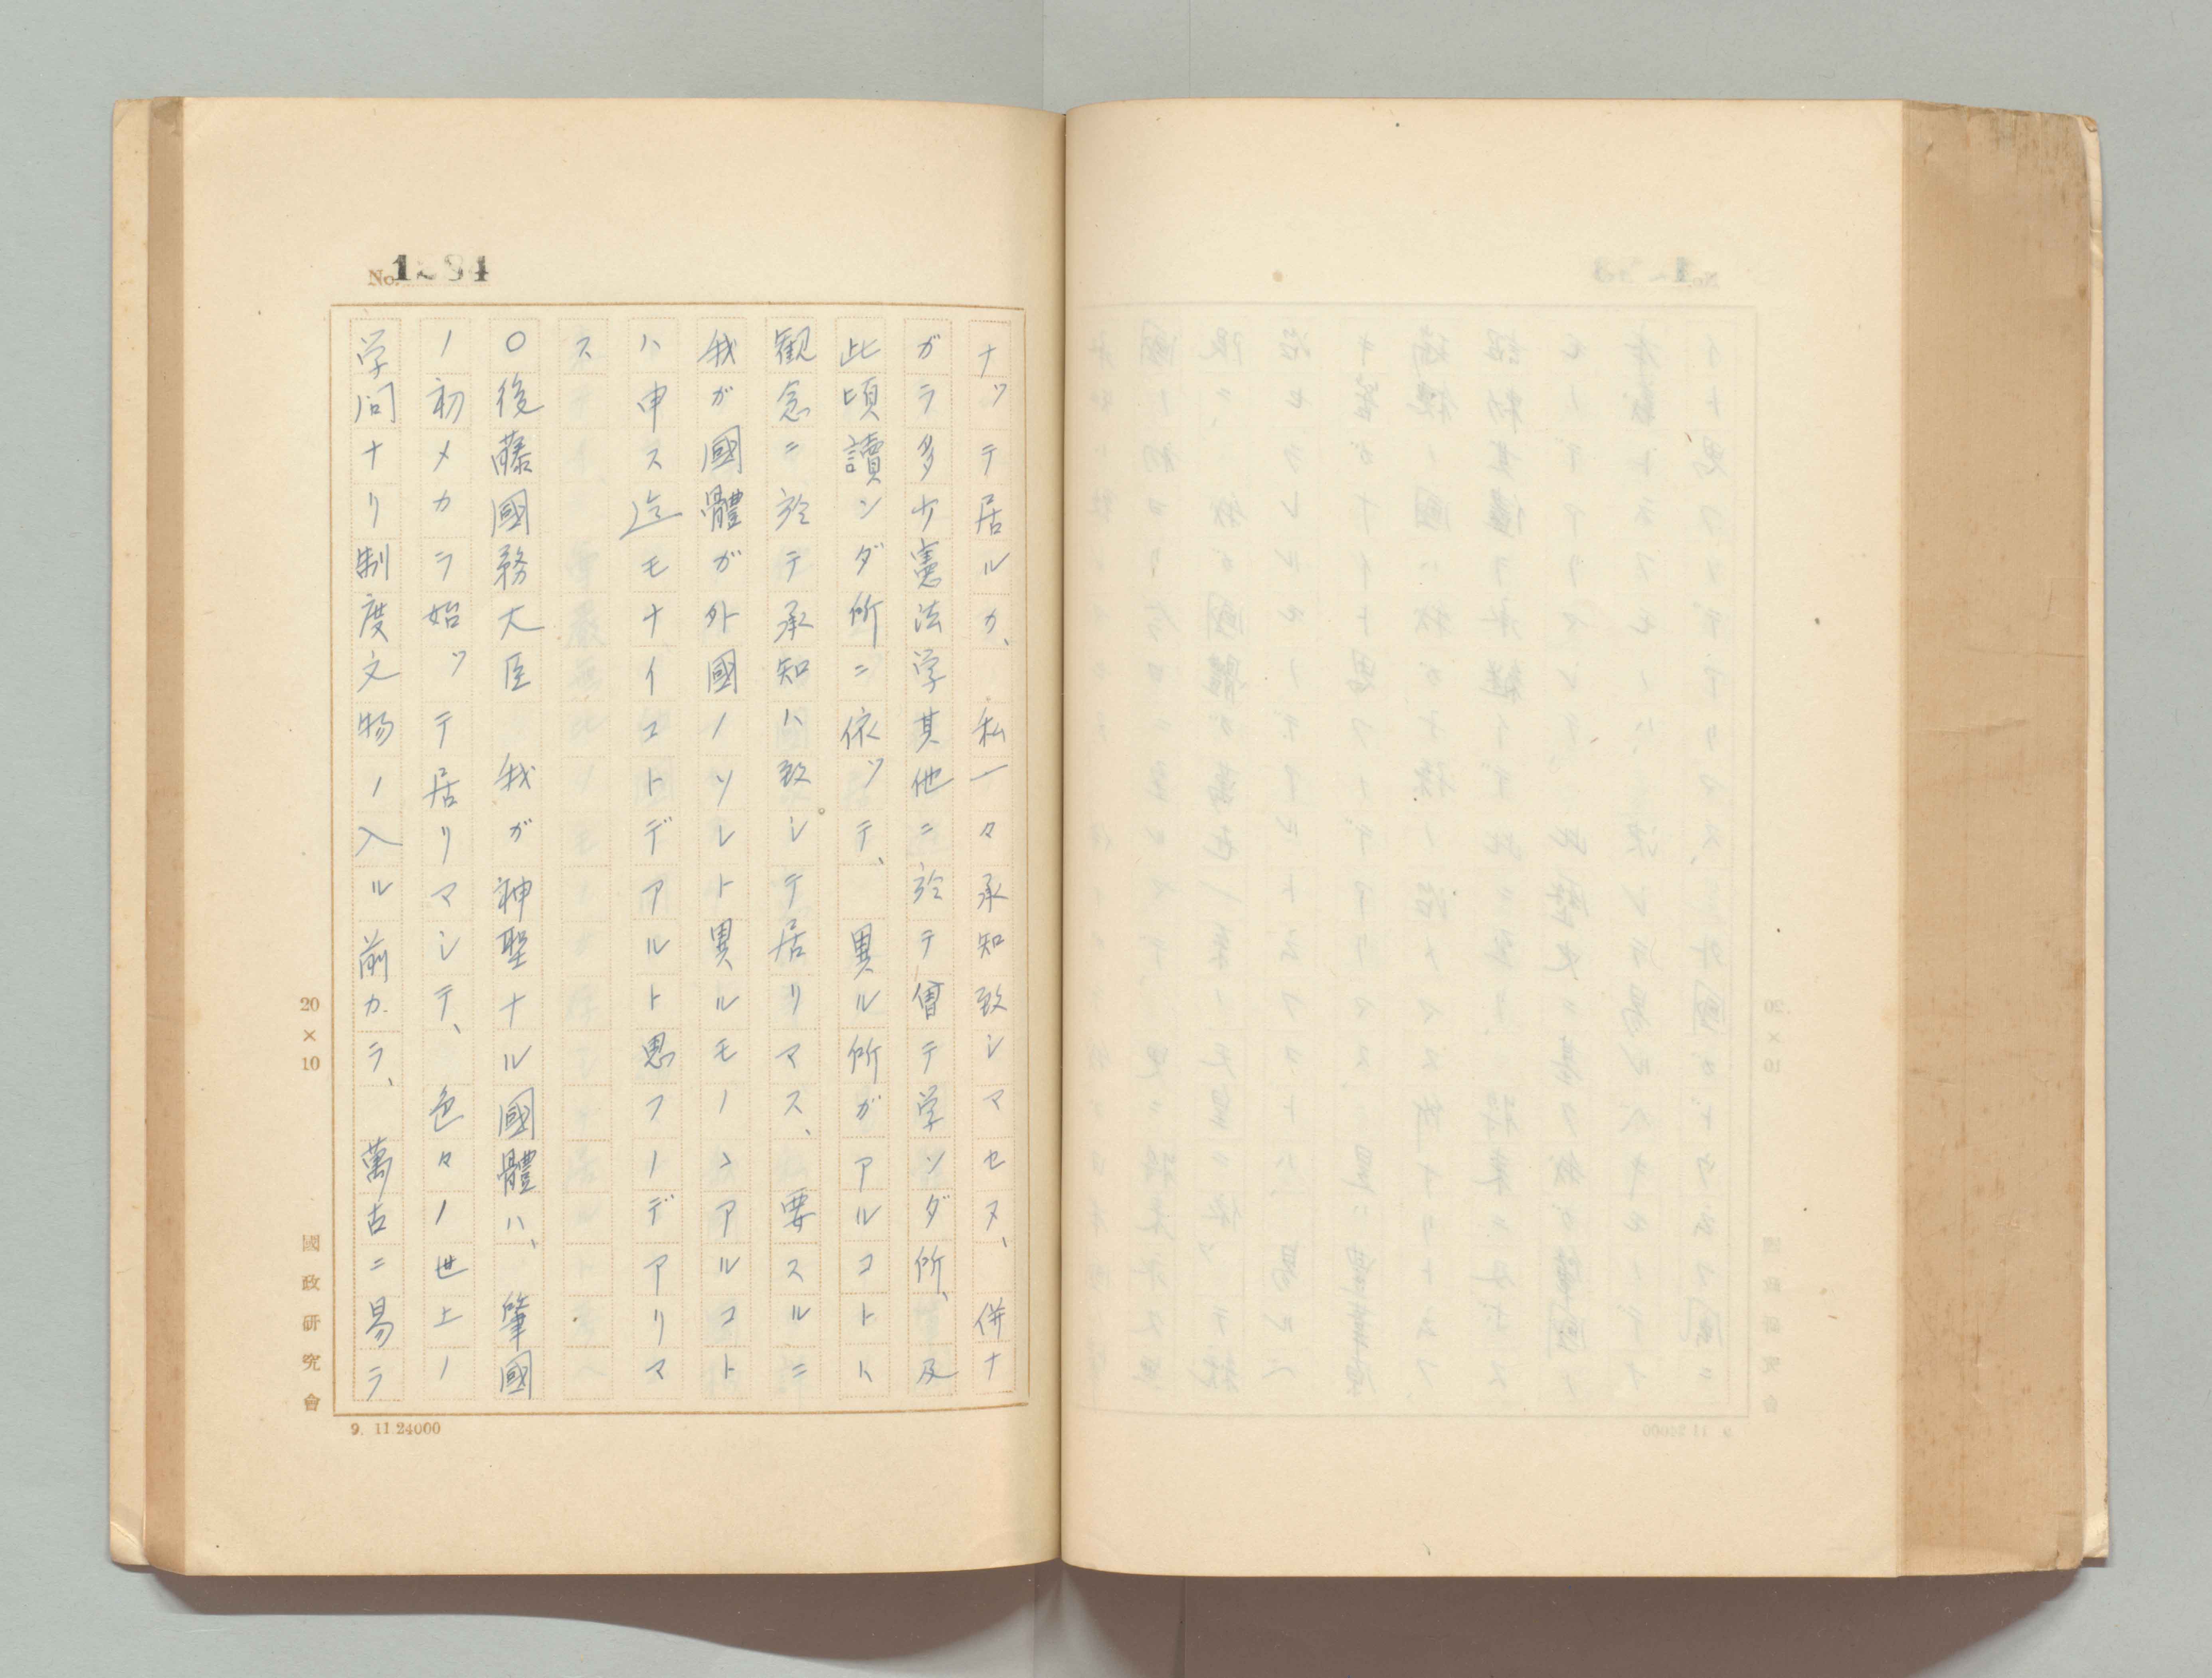 No.1294
ナッテ居ルカ、私一々承知致シマセヌ、併ナ
ガラ多少憲法学其他ニ於テ曾テ学ンダ所、及
此頃讀ンダ所ニ依ッテ、異ル所ガアルコトハ
観念ニ於テ承知ハ致シテ居リマス、要スルニ
我ガ國體ガ外國ノソレト異ルモノヽアルコト
ハ申ス迄モナイコトデアルト思フノデアリマ
ス
〇後藤國務大臣 我ガ神聖ナル國體ハ、肇國
ノ初メカラ始ッテ居リマシテ、色々ノ世上ノ
学問ナリ制度文物ノ入ル前カラ、萬古ニ易ラ
20×10
國政研究會
9. 11.24000